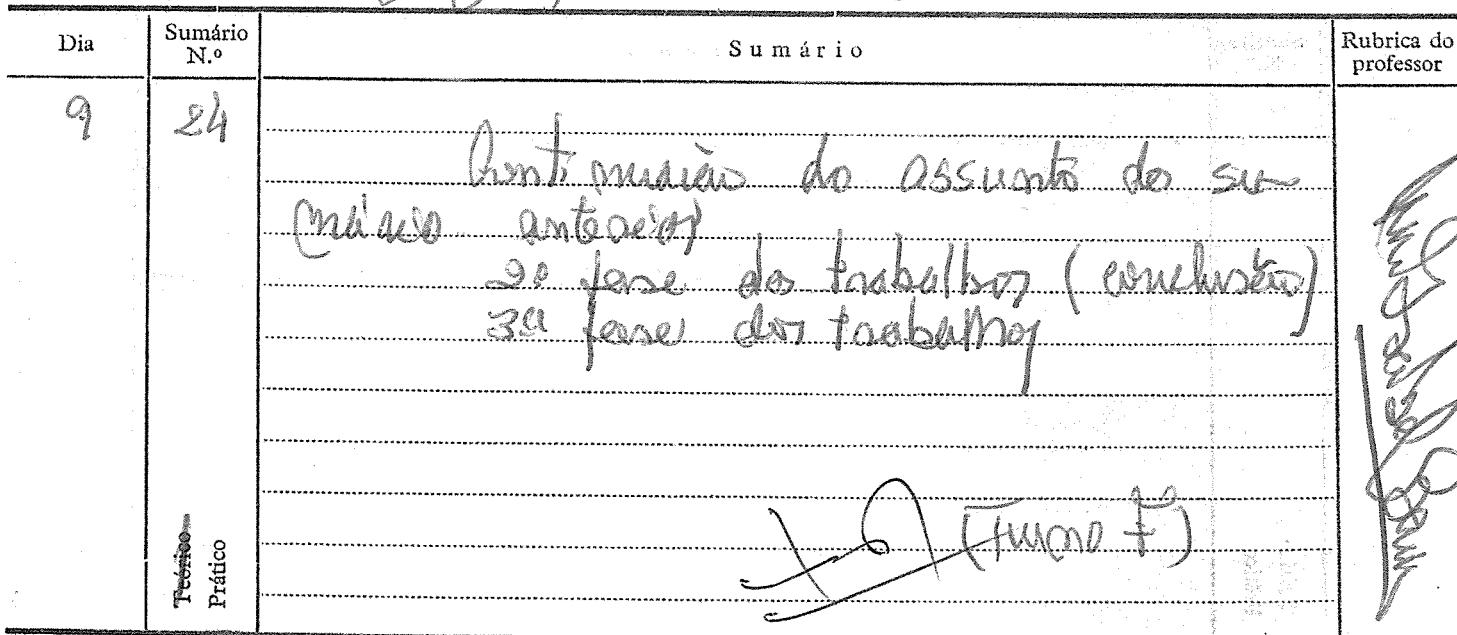 Dia
Sumário
N.º
Sumário
Rubrica do
professor
9
24
Continuação do assunto do su-
mário anterior
2ª fase dos trabalhos (conclusão)
3ª fase dos trabalhos
(Turno F)
Teórico
Prático